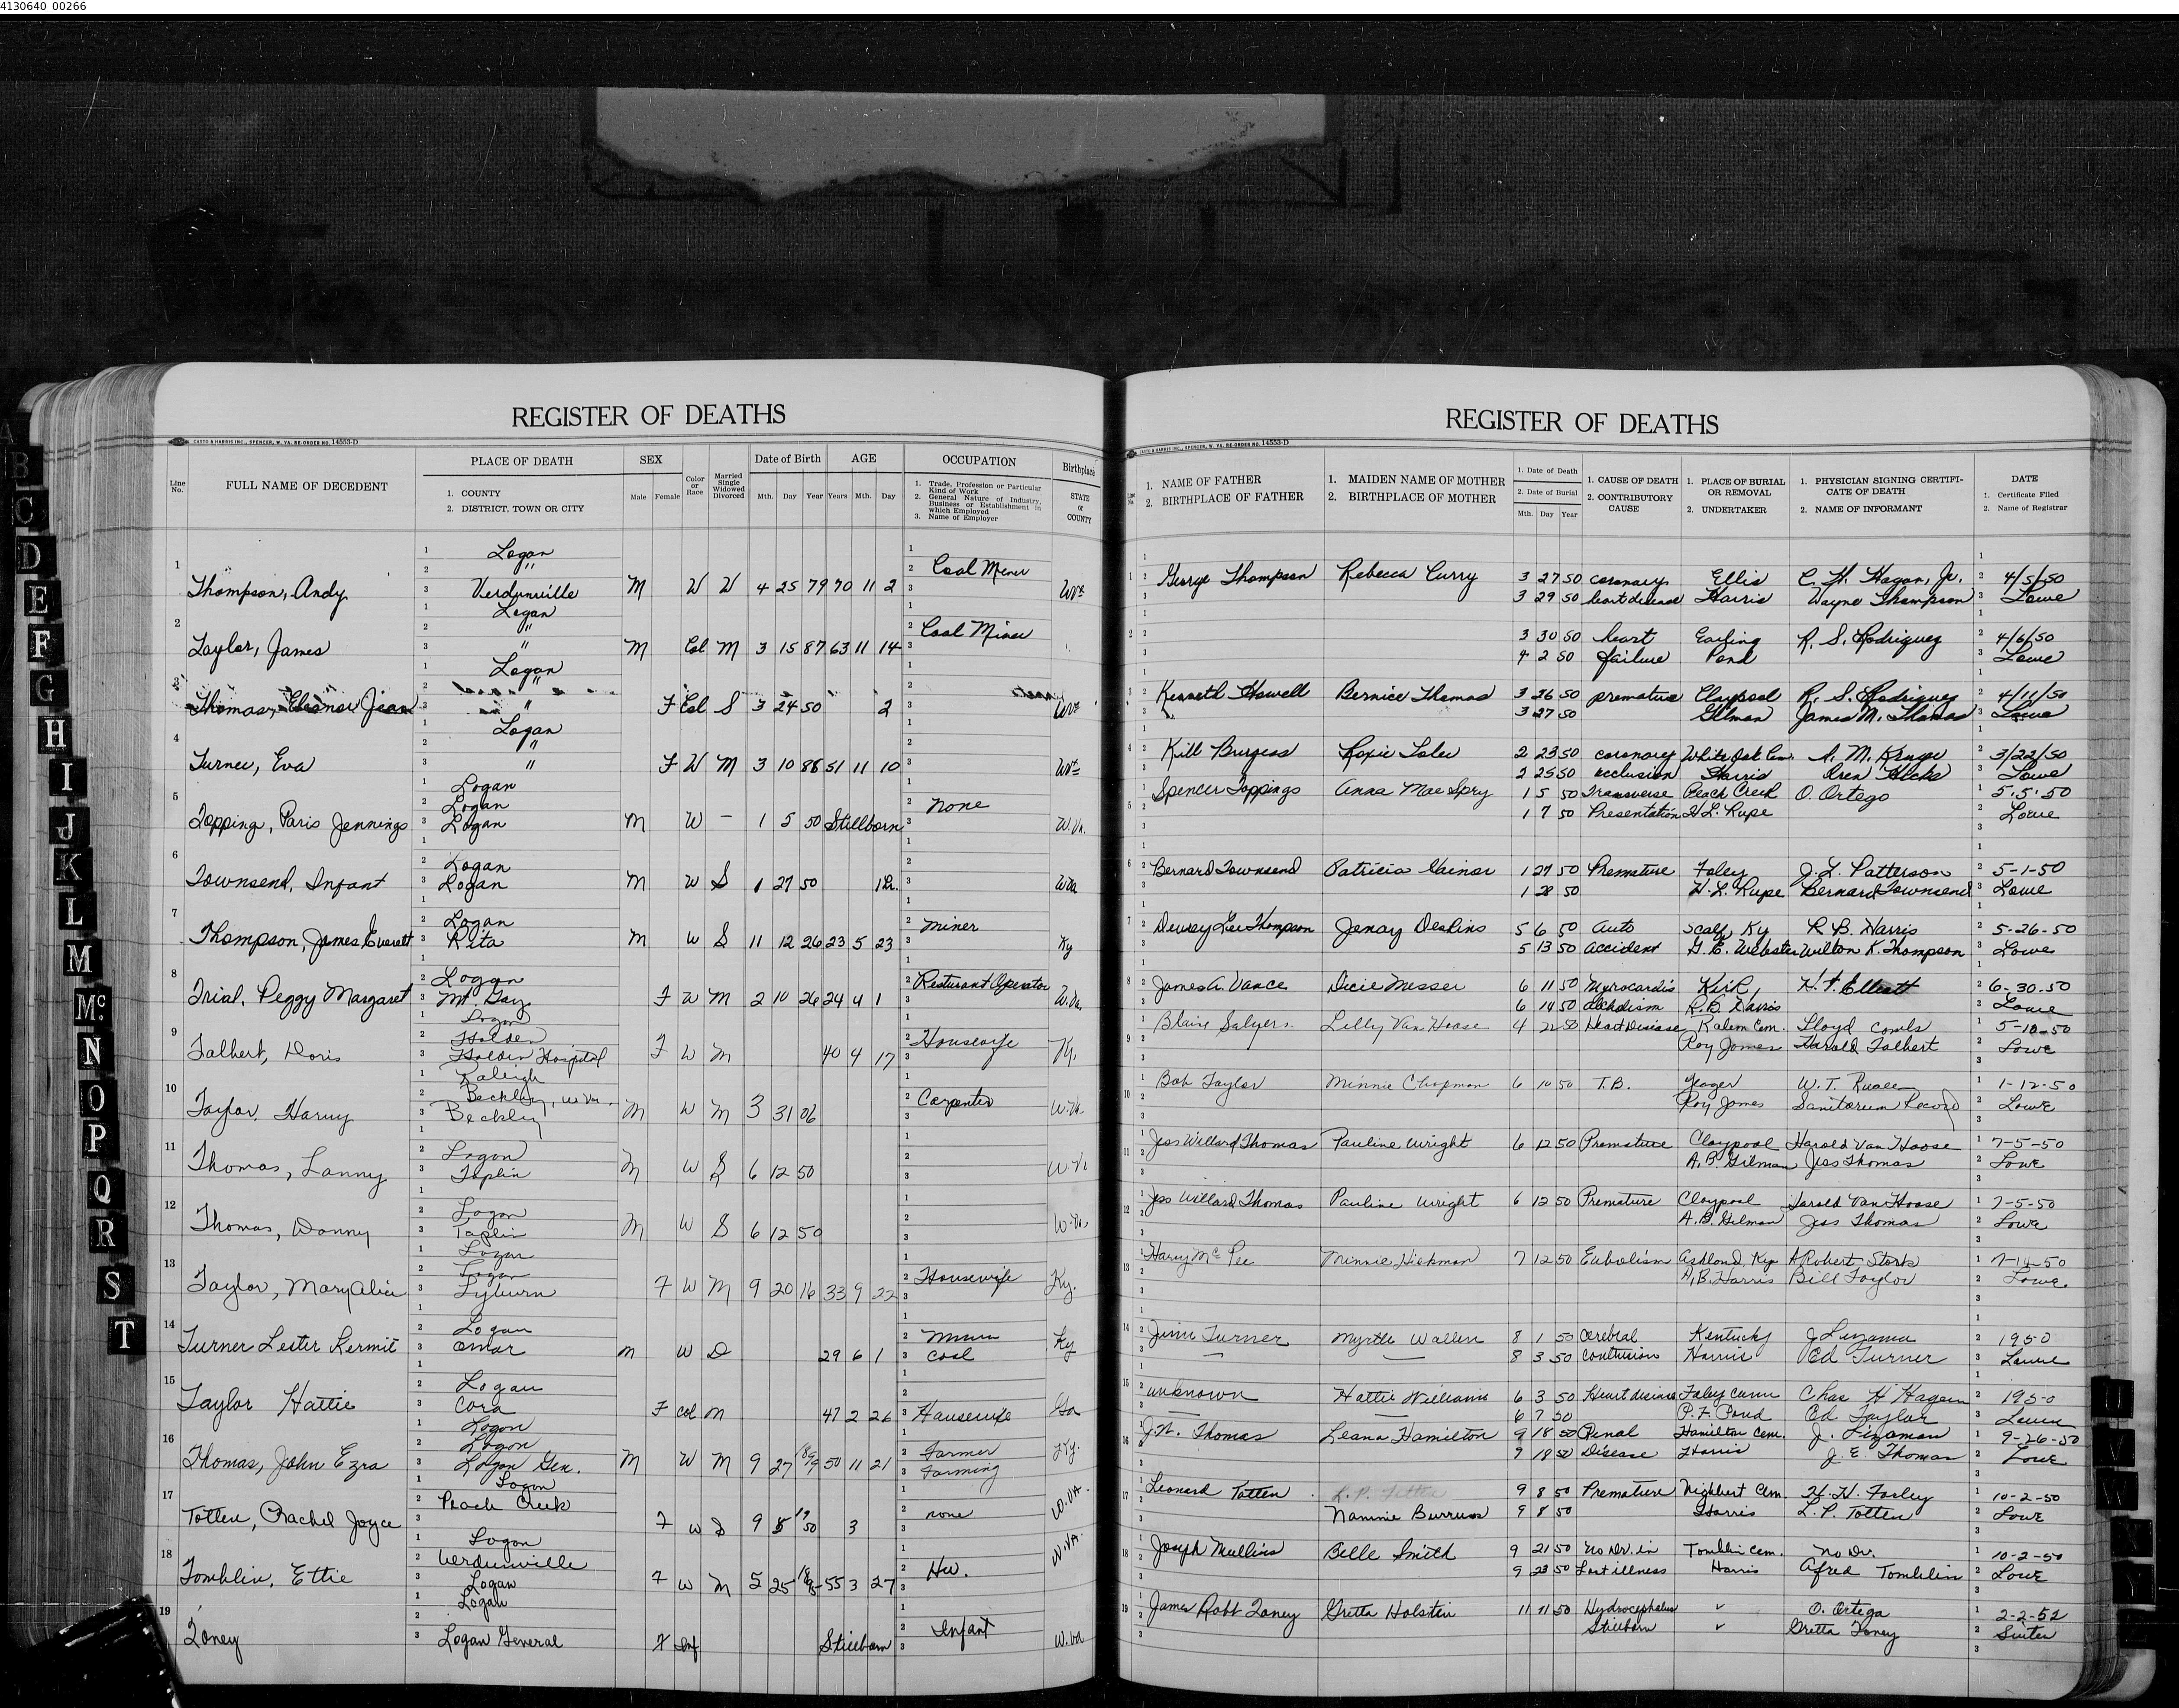 4130640_00266
REGISTER OF DEATHS
CASTO & HARRIS INC., SPENCER, W. VA. RE-ORDER NO. 14553-D
Line No.
FULL NAME OF DECEDENT
PLACE OF DEATH
1. COUNTY
2. DISTRICT, TOWN OR CITY
SEX
Male Female
Color or Race
Married Single Widowed Divorced
Date of Birth
Mth. Day Year
AGE
Years Mth. Day
OCCUPATION
1. Trade, Profession or Particular Kind of Work
2. General Nature of Industry, Business or Establishment in which Employed
3. Name of Employer
Birthplace
STATE or COUNTY
1 Thompson, Andy Logan " Verdunville M W W 4 25 79 70 11 2 Coal Miner
2 Taylor, James Logan " " M Col M 3 15 87 63 11 14 Coal Miner
3 Thomas, Eleanor Jean Logan " " F Col S 3 24 50 2
4 Turner, Eva Logan " " F W M 3 10 88 51 11 10
5 Topping, Paris Jennings Logan Logan Logan M W - 1 5 50 Stillborn none W.Va.
6 Townsend, Infant Logan Logan M W S 1 27 50 W.Va
7 Thompson, James Everett Logan Rita M W S 11 12 26 23 5 23 miner Ky
8 Trial, Peggy Margaret Logan Mt Gay F W M 2 10 26 24 4 1 Resturant Operator W.Va.
9 Talbert, Doris Logan Holden Holden Hospital F W M 40 4 17 Housewife Ky.
10 Taylor, Harvy Raleigh Beckley, W.Va. Beckley M W M 3 31 06 Carpenter W.Va.
11 Thomas, Lanny Logan Taplin M W S 6 12 50 W.Va
12 Thomas, Danny Logan Taplin M W S 6 12 50 W.Va.
13 Taylor, Mary Alice Logan Logan Lyburn F W M 9 20 16 33 9 22 Housewife Ky.
14 Turner Lester Kermit Logan Omar M W D 29 6 1 Coal Ky
15 Taylor Hattie Logan Cora F Col M 47 2 26 Housewife Ga
16 Thomas, John Ezra Logan Logan Logan Gen. M W M 9 27 1899 50 11 21 Farmer Farming Ky.
17 Totten, Rachel Joyce Logan Peach Creek F W S 9 8 1950 3 none W.VA.
18 Tomblin, Ettie Logan Verdunville Logan F W M 5 25 1895 55 3 27 Hw. W.VA.
19 Toney Logan Logan General F Inf Stillborn Infant W.Va
REGISTER OF DEATHS
CASTO & HARRIS INC., SPENCER, W. VA. RE-ORDER NO. 14553-D
Line No.
1. NAME OF FATHER
2. BIRTHPLACE OF FATHER
1. MAIDEN NAME OF MOTHER
2. BIRTHPLACE OF MOTHER
1. Date of Death
2. Date of Burial
Mth. Day Year
1. CAUSE OF DEATH
2. CONTRIBUTORY CAUSE
1. PLACE OF BURIAL OR REMOVAL
2. UNDERTAKER
1. PHYSICIAN SIGNING CERTIFICATE OF DEATH
2. NAME OF INFORMANT
DATE
1. Certificate Filed
2. Name of Registrar
1 George Thompson Rebecca Curry 3 27 50 coronary Ellis C. H. Hagan, Jr. 4/5/50
3 29 50 heart disease Harris Wayne Thompson Lowe
2 3 30 50 heart Earling R. S. Rodriguez 4/6/50
4 2 50 failure Pond Lowe
3 Kenneth Howell Bernice Thomas 3 26 50 premature Claypool R. S. Rodriguez 4/11/50
3 27 50 Gilman James M. Thomas Lowe
4 Kill Burgess Roxie Isler 2 23 50 coronary White Oak Cem. A. M. 3/22/50
2 25 50 occlusion Harris Oren Hicks Lowe
5 Spencer Toppings Anna Mae Spry 1 5 50 Transverse Peach Creek O. Ortego 5-5-50
1 7 50 Presentation H.L. Rupe Lowe
6 Bernard Townsend Patricia Gainer 1 27 50 Premature Foley J.L. Patterson 5-1-50
1 28 50 H.L. Rupe Bernard Townsend Lowe
7 Dewey Lee Thompson Jenay Deskins 5 6 50 Auto Scalf, Ky R.B. Harris 5-26-50
5 13 50 accident G.E. Webster Wilton K. Thompson Lowe
8 James A. Vance Dicie Messer 6 11 50 Myrocardis Kirk, H.F. Elliott 6-30-50
6 14 50 alcholism R.B. Harris Lowe
9 Blaine Salyers Lilly Van Hoose 4 22 50 Heart Disease Lloyd 5-10-50
Roy James Harold Talbert Lowe
10 Bob Taylor Minnie Chapman 6 10 50 T.B. Yeager W.T. 1-12-50
Roy James Sanitorium Record Lowe
11 Jess Willard Thomas Pauline Wright 6 12 50 Premature Claypool Harold Van Hoose 7-5-50
A.B. Gilman Jess Thomas Lowe
12 Jess Willard Thomas Pauline Wright 6 12 50 Premature Claypool Harold Van Hoose 7-5-50
A.B. Gilman Jess Thomas Lowe
13 Harry Mc Pee Minnie Hickman 7 12 50 Embolism Ashland, Ky Robert Stots 7-14-50
A.B. Harris Bill Taylor Lowe
14 Jim Turner Myrtle Wallen 8 1 50 cerebral Kentucky 1950
8 3 50 contusion Harris Ed Turner Lowe
15 unknown Hattie Williams 6 3 50 Heart disease Foley Cem Chas H Hagen 1950
6 7 50 P.F. Pond Ed Taylor Lowe
16 J.N. Thomas Leana Hamilton 9 18 50 Renal Hamilton Cem. J. Lizaman 9-26-50
9 18 50 Disease Harris J.E. Thomas Lowe
17 Leonard Totten 9 8 50 Premature Nighbert Cem. H.H. Farley 10-2-50
Nannie Burruss 9 8 50 Harris L.P. Totten Lowe
18 Joseph Mullins Belle Smith 9 21 50 No Dr. in Tomblin Cem. No Dr. 10-2-50
9 23 50 Last illness Harris Afred Tomblin Lowe
19 James Robt Toney Gretta Holstein 11 11 50 Hydrocephalus ✓ O. Ortega 2-2-52
Stillborn ✓ Gretta Toney Suiter
A
B
C
D
E
F
G
H
I
J
K
L
M
Mc
N
O
P
Q
R
S
T